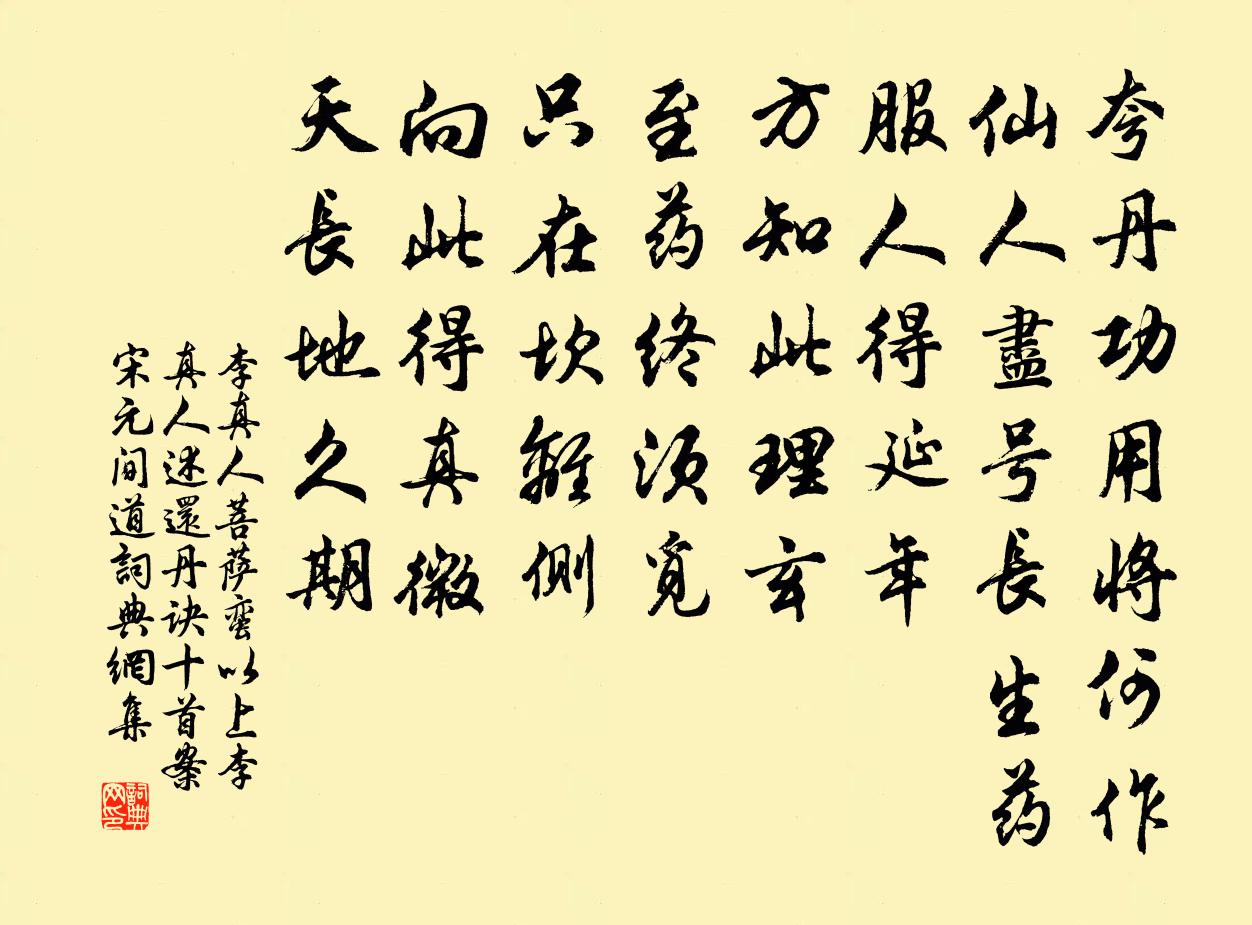 夸丹功用將何作
仙人盡号長生药
服人得延年
方知此理玄
至药终须觅
只在坎離側
向此得真微
天長地久期
李真人菩萨蛮以上李
真人述還丹诀十首案
宋元间道詞典網集
詞典网印